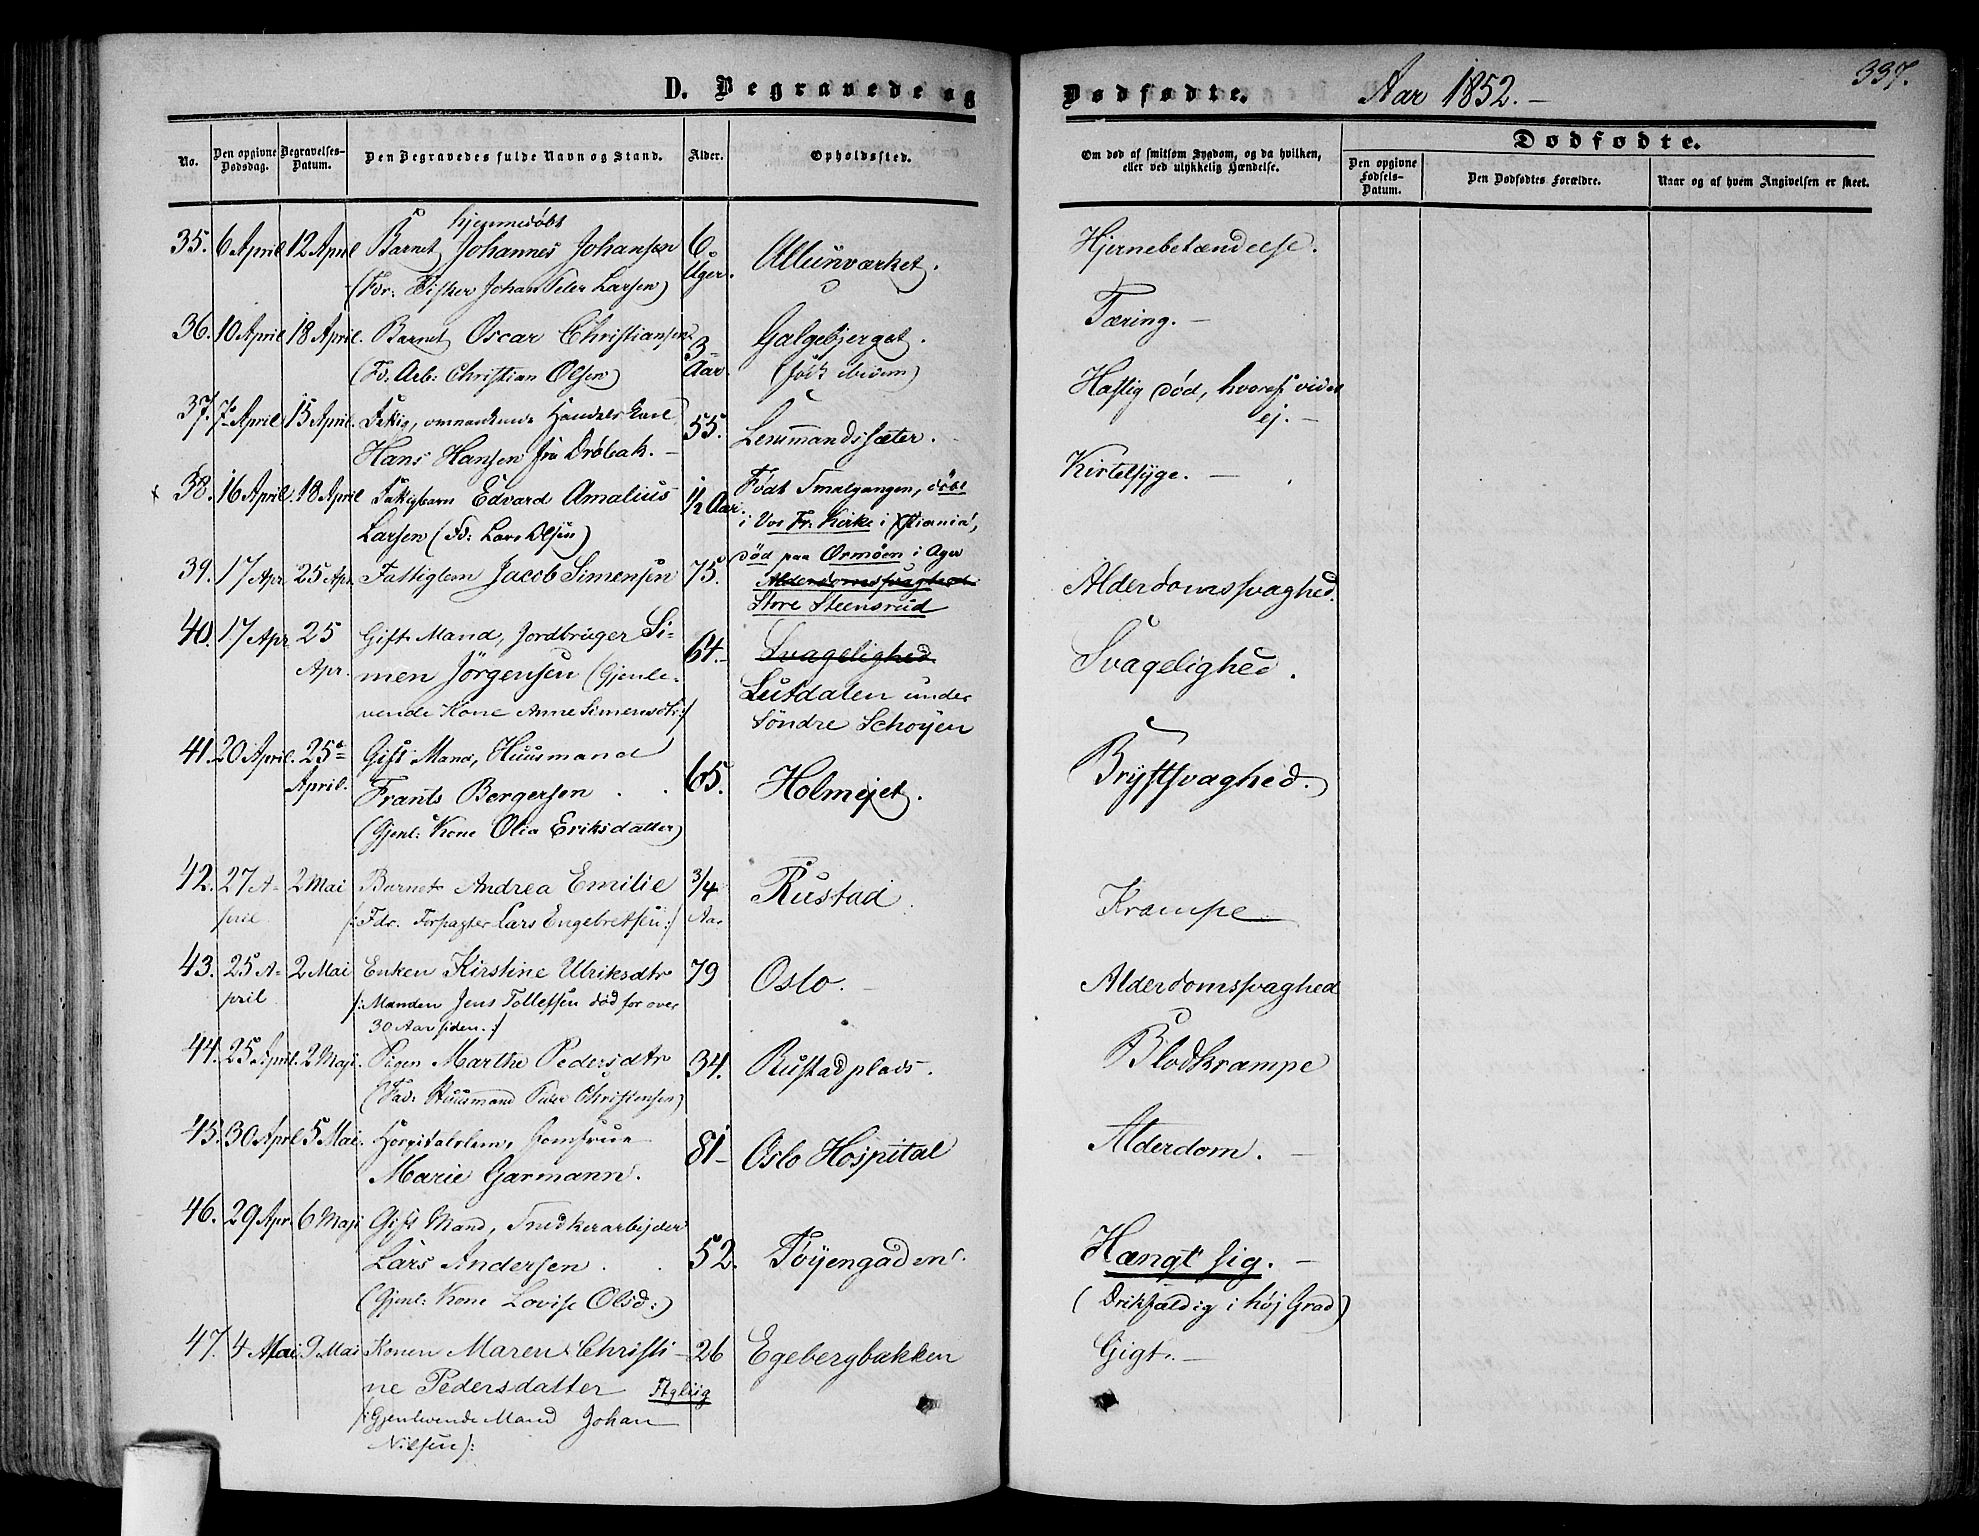 D. Begravede og
Dødfødte. Aar 1852.-
337.
No.
Den opgivne Dødsdag.
Begravelses-Datum.
Den Begravedes fulde Navn og Stand.
Alder.
Opholdssted.
Om død af smitsom Sygdom, og da hvilken,
eller ved ulykkelig Hændelse.
Dødfødte.
Den opgivne Fødsels-Datum.
Den Dødfødtes Forældre.
Naar og af hvem Angivelsen er skeet.
hjemmedøbt
35. 6 April 12 April Barnet Johannes Johansen 6 Uger.
(Fdr: Fisker Johan Peter Larsen)
Allunværket.
Hjernebetændelse.
36. 10 April 18 April. Barnet Oscar Christiansen 3 Aar.
(Fd. Arb: Christian Olsen)
Galgebjerget.
(født ibidem)
Tæring.-
37. 7 April 15 April. Fattig, omvankende Handelskarl 55.
Hans Hansen fra Drøbak.-
Lensmandssæter.
Hastig død, hvoraf vides
ej.-
38. 16 April. 18 April Fattigbarn Edvard Amalius 1 1/2 Aar.
Larsen (Fd: Lars Olsen)
Født Smalgangen, døbt
i Vor Fr: Kirke i Xstiania,
død paa Ormøen i Ager
Kirtelsyge.-
39. 17 Apr. 25 Apr. Fattiglem Jacob Simensen 75.
Alderdomssvaghed
Store Steensrud
Alderdomssvaghed.
40. 17 Apr 25 Apr. Gift Mand, Jordbruger Si-
men Jörgensen (Gjenle-
vende Kone Anne Simensdtr:/
64.-
Svagelighed
Lutdalen under
Söndre Schøyen
Svagelighed.
41. 20 April. 25 April. Gift Mand, Huusmand
Frants Borgersen
(Gjenl: Kone Olia Eriksdatter)
65.
Holmejet.
Brystsvaghed.
42. 27 A-
pril 2 Mai Barnet Andrea Emilie 3/4 Aar
/: Fdr. Forpagter Lars Engebretsen :/
Rustad
Krampe
43. 25 A-
pril 2 Mai Enken Kirstine Ulriksdtr 79
/: Manden Jens Tollefsen død for over
30 Aar siden. :/
Oslo.
Alderdomssvaghed
44. 25 April. 2 Maji. Pigen Marthe Pedersdtr 34.
(Fad: Huusmand Peder Christensen)
Rustadplads.
Blodkrampe
45. 30 April 5 Mai. Hospitalslem, Jomfrue
Marie Garmann.
81-
Oslo Hospital
Alderdom.-
46. 29 Apr. 6 Maji Gift Mand, Snedkerarbejder
Lars Andersen
(Gjenl: Kone Lovise Olsd:)
52.
Tøyengaden.
Hængt sig.-
(Drikfældig i høj Grad)
47. 4 Mai 9 Mai Konen Maren Christi-
ne Pedersdatter
/: Gjenlevende Mand Johan
Nilsen):
26
Egebergbakken
Gigt.-